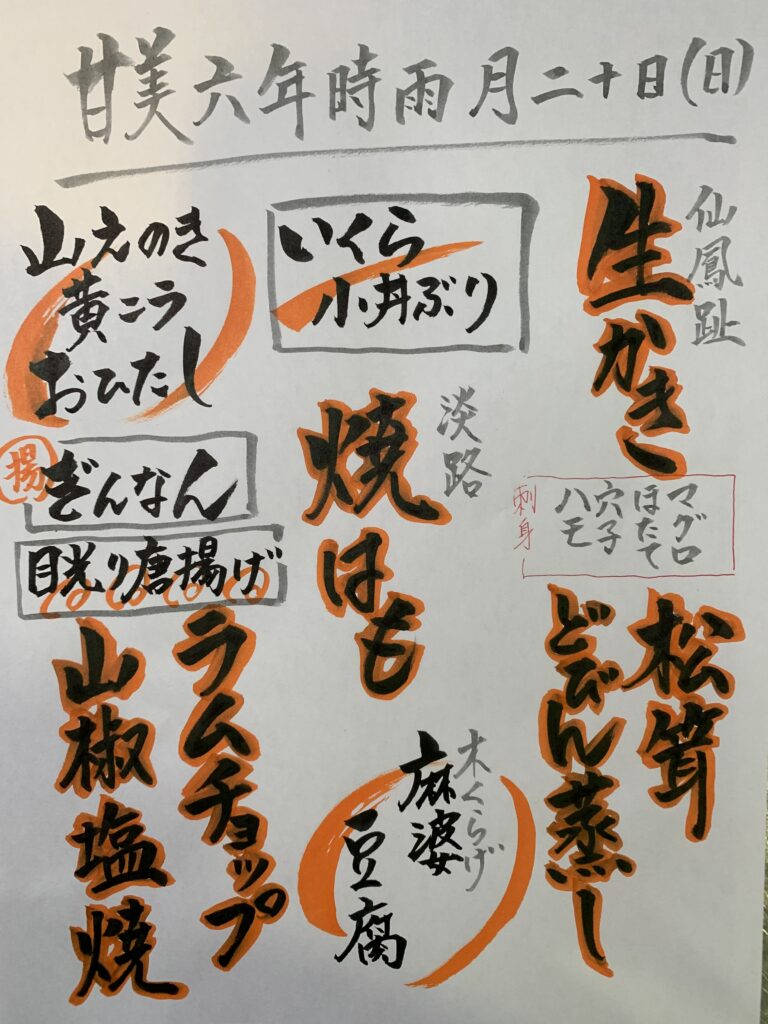 甘美六年時雨月二十日(日)
仙鳳趾
生かき
マグロ
ほたて
穴子
ハモ
刺身
松茸
どびん蒸し
いくら
小丼ぶり
淡路
焼はも
木くらげ
麻婆
豆腐
山えのき
黄こう
おひたし
揚
ぎんなん
目光り唐揚げ
ラムチョップ
山椒塩焼